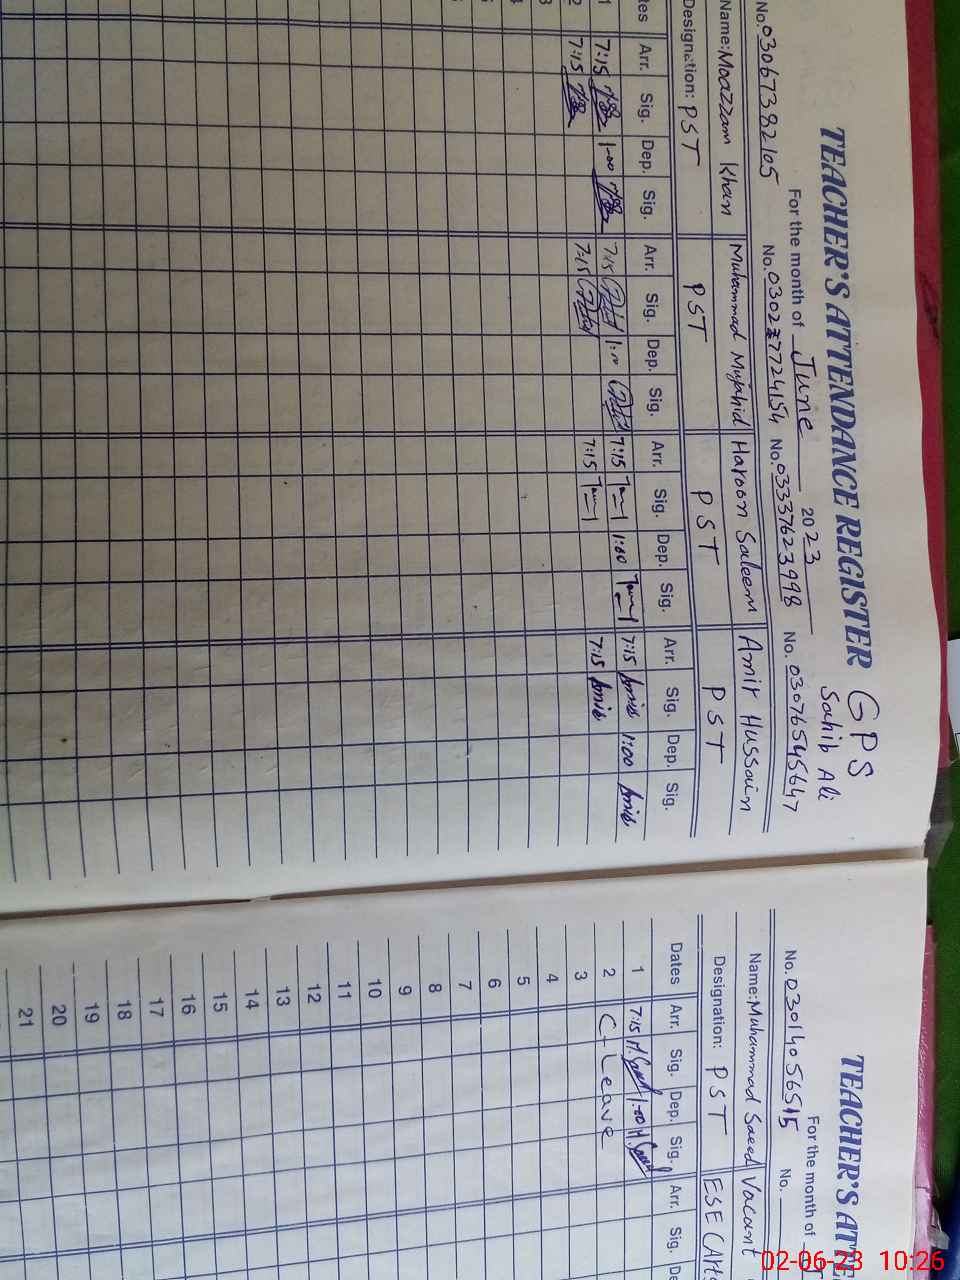 TEACHER'S ATTENDANCE REGISTER GPS
Sahib Ali
For the month of June 2023
No. 03067382105 No. 03027724154 No. 03337623998 No. 03076545647
Name: Moazzam Khan Muhammad Mujahid Haroon Saleem Amir Hussain
Designation: PST PST PST PST
Arr. Sig. Dep. Sig. Arr. Sig. Dep. Sig. Arr. Sig. Dep. Sig. Arr. Sig. Dep. Sig.
1 7:15 1-00 7:15 1:00 7:15 1:00 7:15 Amir 1:00 Amir
2 7:15 7:15 7:15 7:15 Amir
3
4
TEACHER'S
For the month of
No. 03014056515 No.
Name: Muhammad Saeed Vacant
Designation: PST ESE (Arts
Dates Arr. Sig. Dep. Sig. Arr. Sig.
1 7:15 M. Saeed 1-00 M. Saeed
2 C-Leave
3
4
5
6
7
8
9
10
11
12
13
14
15
16
17
18
19
20
21
02-06-23 10:26